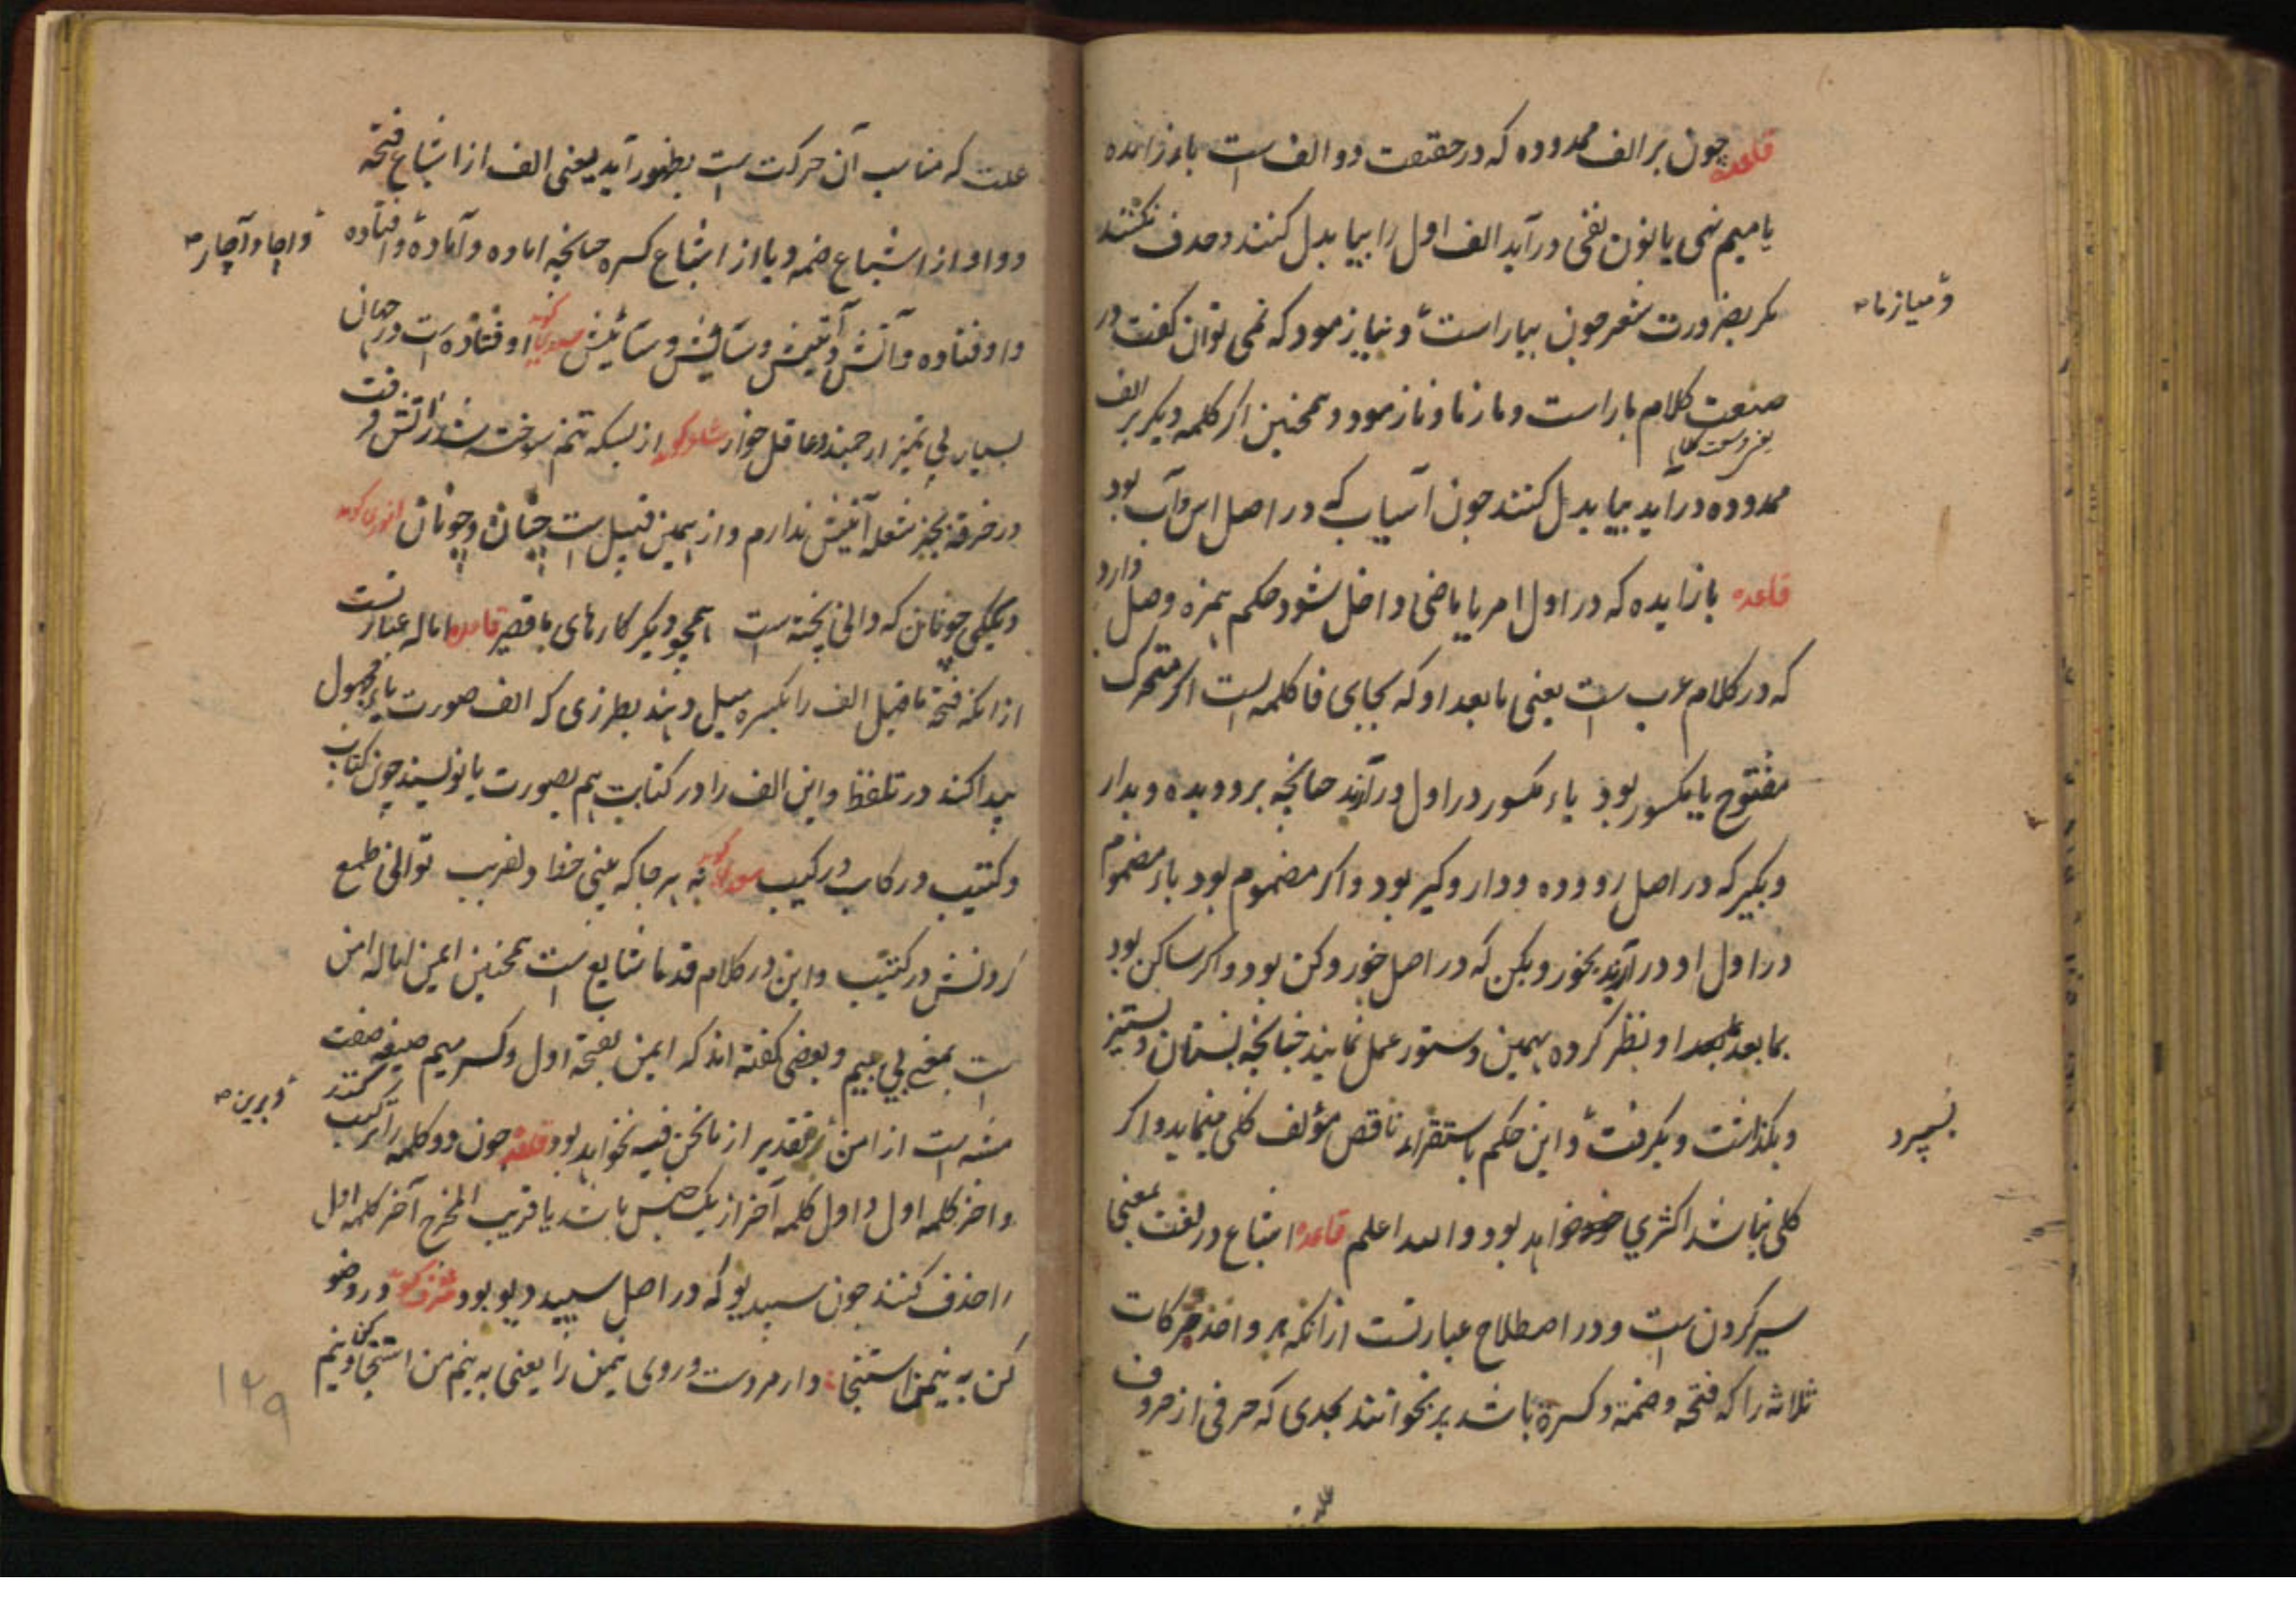 قاعده چون بر الف ممدوده که در حقیقت دو الف است باء زائده
یا میم نهی یا نون نفی درآید الف اول را بیا بدل کنند و حذف نکنند
مگر بضرورت شعر چون بیاراست و نیازمود که نمی توان گفت در
و میازما
صنعت کلام باراست و مازما و نازمود و همچنین اگر کلمه دیگر بر الف
ممدوده درآید بیا بدل کنند چون آسیاب که در اصل اس و آب بود
قاعده با زایده که در اول امر یا ماضی داخل شود حکم همزه وصل دارد
که در کلام عرب است یعنی ما بعد او که بجای فا کلمه است اگر متحرک
مفتوح یا مکسور بود باء مکسور در اول درآرند چنانچه برو و بده و بدار
و بگیر که در اصل رو و ده و دار و گیر بود و اگر مضموم بود باء مضموم
در اول او درآرند بخور و بکن که در اصل خور و کن بود و اگر ساکن بود
بما بعد او نظر کرده بهمین دستور عمل نمایند چنانچه بستان و ستیز
و بگذاشت و بگرفت و این حکم باستقراء ناقص مؤلف کلی مینماید و اگر
بسپرد
کلی نباشد اکثری خواهد بود والله اعلم قاعده اشباع در لغت بمعنی
سیر کردن است و در اصطلاح عبارتست ازانکه هر واحد حرکات
ثلاثه را که فتحه و ضمه و کسره باشد پر بخوانند بحدی که حرفی از حروف
علت
علت که مناسب آن حرکت است بظهور آید یعنی الف از اشباع فتحه
و واو از اشباع ضمه و یا از اشباع کسره چنانچه اماده و آماده و افتاده
و اچار و آچار
و اوفتاده و آتش و آتیش و اوفتاده است در جهان
بسیار بی تمیز ارجمند و عاقل خوار از بسکه تنم سوخته شد ز آتش فرقت
در خرقه بجز شعله آتیش ندارم و از همین قبیل است چنان و چونان انوری گوید
نیکی چونان که دانی پخته است همچو دیگر کارهای با قصیر قاعده اماله عبارتست
ازانکه فتحه ماقبل الف را بکسره میل دهند بطرزی که الف صورت یاء مجهول
پیدا کند در تلفظ و این الف را در کتابت هم بصورت یا نویسند چون کتاب
و کتیب و رکاب و رکیب نه هر جا که بینی خط دلفریب توانی طمع
کردنش در کتیب و این در کلام قدما شایع است همچنین ایمن اماله امن
است بمعنی بی بیم و بعضی گفته اند که ایمن بفتحه اول و کسر میم صیغه صفت
مشبه است از امن تقدیر از ما نحن فیه نخواهد بود قاعده چون دو کلمه را ترکیب کنند
و برین
و آخر کلمه اول و اول کلمه آخر از یک جنس باشد یا قریب المخرج آخر کلمه اول
را حذف کنند چون سپیدیو که در اصل سپید دیو بود در وضو
کن به نیمن استنجا دار مر دست و روی نیمن را یعنی به نیم من استنجا کن و نیم
۱۲۹